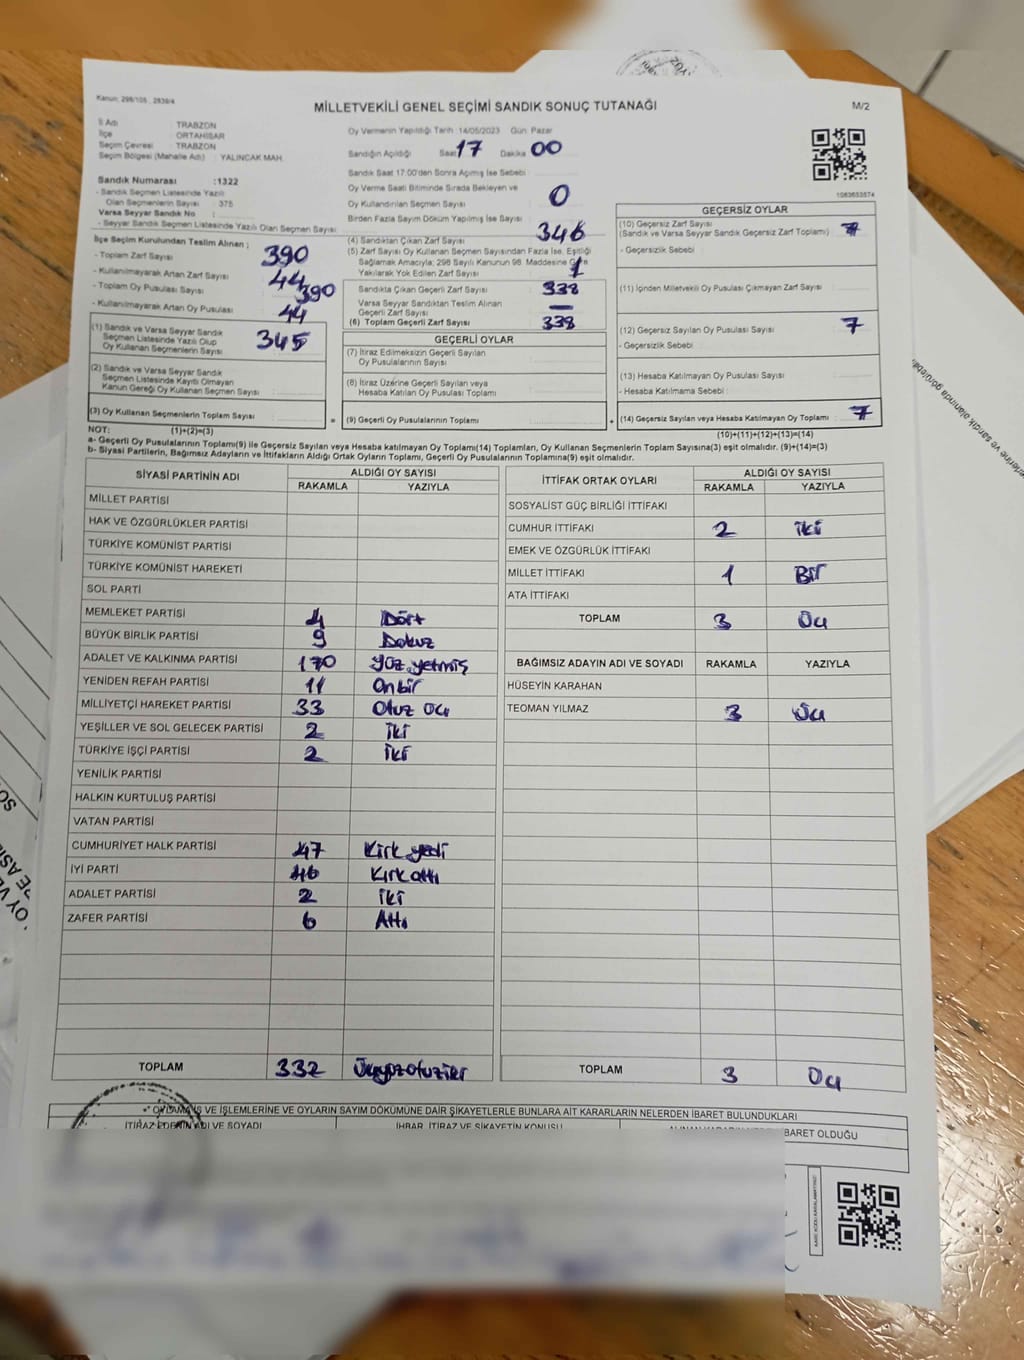 Kanun: 298/105 , 2839/4
MİLLETVEKİLİ GENEL SEÇİMİ SANDIK SONUÇ TUTANAĞI
M/2
İl Adı : TRABZON
İlçe : ORTAHİSAR
Seçim Çevresi : TRABZON
Seçim Bölgesi (Mahalle Adı) : YALINCAK MAH.
Sandık Numarası :1322
- Sandık Seçmen Listesinde Yazılı
Olan Seçmenlerin Sayısı : 375
Varsa Seyyar Sandık No :
- Seyyar Sandık Seçmen Listesinde Yazılı Olan Seçmen Sayısı
Oy Vermenin Yapıldığı Tarih :14/05/2023 Gün: Pazar
Sandığın Açıldığı Saat 17 Dakika 00
Sandık Saat 17:00'den Sonra Açımış İse Sebebi
Oy Verme Saati Bitiminde Sırada Bekleyen ve
Oy Kullandırılan Seçmen Sayısı 0
Birden Fazla Sayım Döküm Yapılmış İse Sayısı
1083653574
İlçe Seçim Kurulundan Teslim Alınan ;
- Toplam Zarf Sayısı 390
- Kullanılmayarak Artan Zarf Sayısı 44
- Toplam Oy Pusulası Sayısı 390
- Kullanılmayarak Artan Oy Pusulası 44
(1) Sandık ve Varsa Seyyar Sandık
Seçmen Listesinde Yazılı Olup
Oy Kullanan Seçmenlerin Sayısı 345
(2) Sandık ve Varsa Seyyar Sandık
Seçmen Listesinde Kayıtlı Olmayan
Kanun Gereği Oy Kullanan Seçmen Sayısı
(3) Oy Kullanan Seçmenlerin Toplam Sayısı
(4) Sandıktan Çıkan Zarf Sayısı 346
(5) Zarf Sayısı Oy Kullanan Seçmen Sayısından Fazla İse, Eşitliği
Sağlamak Amacıyla; 298 Sayılı Kanunun 98. Maddesine Göre
Yakılarak Yok Edilen Zarf Sayısı 1
Sandıkta Çıkan Geçerli Zarf Sayısı 338
Varsa Seyyar Sandıktan Teslim Alınan
Geçerli Zarf Sayısı —
(6) Toplam Geçerli Zarf Sayısı 338
GEÇERLİ OYLAR
(7) İtiraz Edilmeksizin Geçerli Sayılan
Oy Pusulalarının Sayısı
(8) İtiraz Üzerine Geçerli Sayılan veya
Hesaba Katılan Oy Pusulası Toplamı
= (9) Geçerli Oy Pusulalarının Toplamı
GEÇERSİZ OYLAR
(10) Geçersiz Zarf Sayısı
(Sandık ve Varsa Seyyar Sandık Geçersiz Zarf Toplamı) 7
- Geçersizlik Sebebi
(11) İçinden Milletvekili Oy Pusulası Çıkmayan Zarf Sayısı
(12) Geçersiz Sayılan Oy Pusulası Sayısı 7
- Geçersizlik Sebebi
(13) Hesaba Katılmayan Oy Pusulası Sayısı
- Hesaba Katılmama Sebebi
+ (14) Geçersiz Sayılan veya Hesaba Katılmayan Oy Toplamı 7
NOT: (1)+(2)=(3) (10)+(11)+(12)+(13)=(14)
a- Geçerli Oy Pusulalarının Toplamı(9) ile Geçersiz Sayılan veya Hesaba katılmayan Oy Toplamı(14) Toplamları, Oy Kullanan Seçmenlerin Toplam Sayısına(3) eşit olmalıdır. (9)+(14)=(3)
b- Siyasi Partilerin, Bağımsız Adayların ve İttifakların Aldığı Ortak Oyların Toplamı, Geçerli Oy Pusulalarının Toplamına(9) eşit olmalıdır.
SİYASİ PARTİNİN ADI ALDIĞI OY SAYISI
RAKAMLA YAZIYLA
MİLLET PARTİSİ
HAK VE ÖZGÜRLÜKLER PARTİSİ
TÜRKİYE KOMÜNİST PARTİSİ
TÜRKİYE KOMÜNİST HAREKETİ
SOL PARTİ
MEMLEKET PARTİSİ 4 Dört
BÜYÜK BİRLİK PARTİSİ 9 Dokuz
ADALET VE KALKINMA PARTİSİ 170 Yüz yetmiş
YENİDEN REFAH PARTİSİ 11 Onbir
MİLLİYETÇİ HAREKET PARTİSİ 33 Otuz üç
YEŞİLLER VE SOL GELECEK PARTİSİ 2 İki
TÜRKİYE İŞÇİ PARTİSİ 2 İki
YENİLİK PARTİSİ
HALKIN KURTULUŞ PARTİSİ
VATAN PARTİSİ
CUMHURİYET HALK PARTİSİ 47 Kırk yedi
İYİ PARTİ 46 Kırk altı
ADALET PARTİSİ 2 İki
ZAFER PARTİSİ 6 Altı
TOPLAM 332 Üçyüzotuziki
İTTİFAK ORTAK OYLARI ALDIĞI OY SAYISI
RAKAMLA YAZIYLA
SOSYALİST GÜÇ BİRLİĞİ İTTİFAKI
CUMHUR İTTİFAKI 2 İki
EMEK VE ÖZGÜRLÜK İTTİFAKI
MİLLET İTTİFAKI 1 Bir
ATA İTTİFAKI
TOPLAM 3 Üç
BAĞIMSIZ ADAYIN ADI VE SOYADI RAKAMLA YAZIYLA
HÜSEYİN KARAHAN
TEOMAN YILMAZ 3 Üç
TOPLAM 3 Üç
OYLAMA İŞ VE İŞLEMLERİNE VE OYLARIN SAYIM DÖKÜMÜNE DAİR ŞİKAYETLERLE BUNLARA AİT KARARLARIN NELERDEN İBARET BULUNDUKLARI
İTİRAZ EDENİN ADI VE SOYADI
İHBAR, İTİRAZ VE ŞİKAYETİN KONUSU
İBARET OLDUĞU